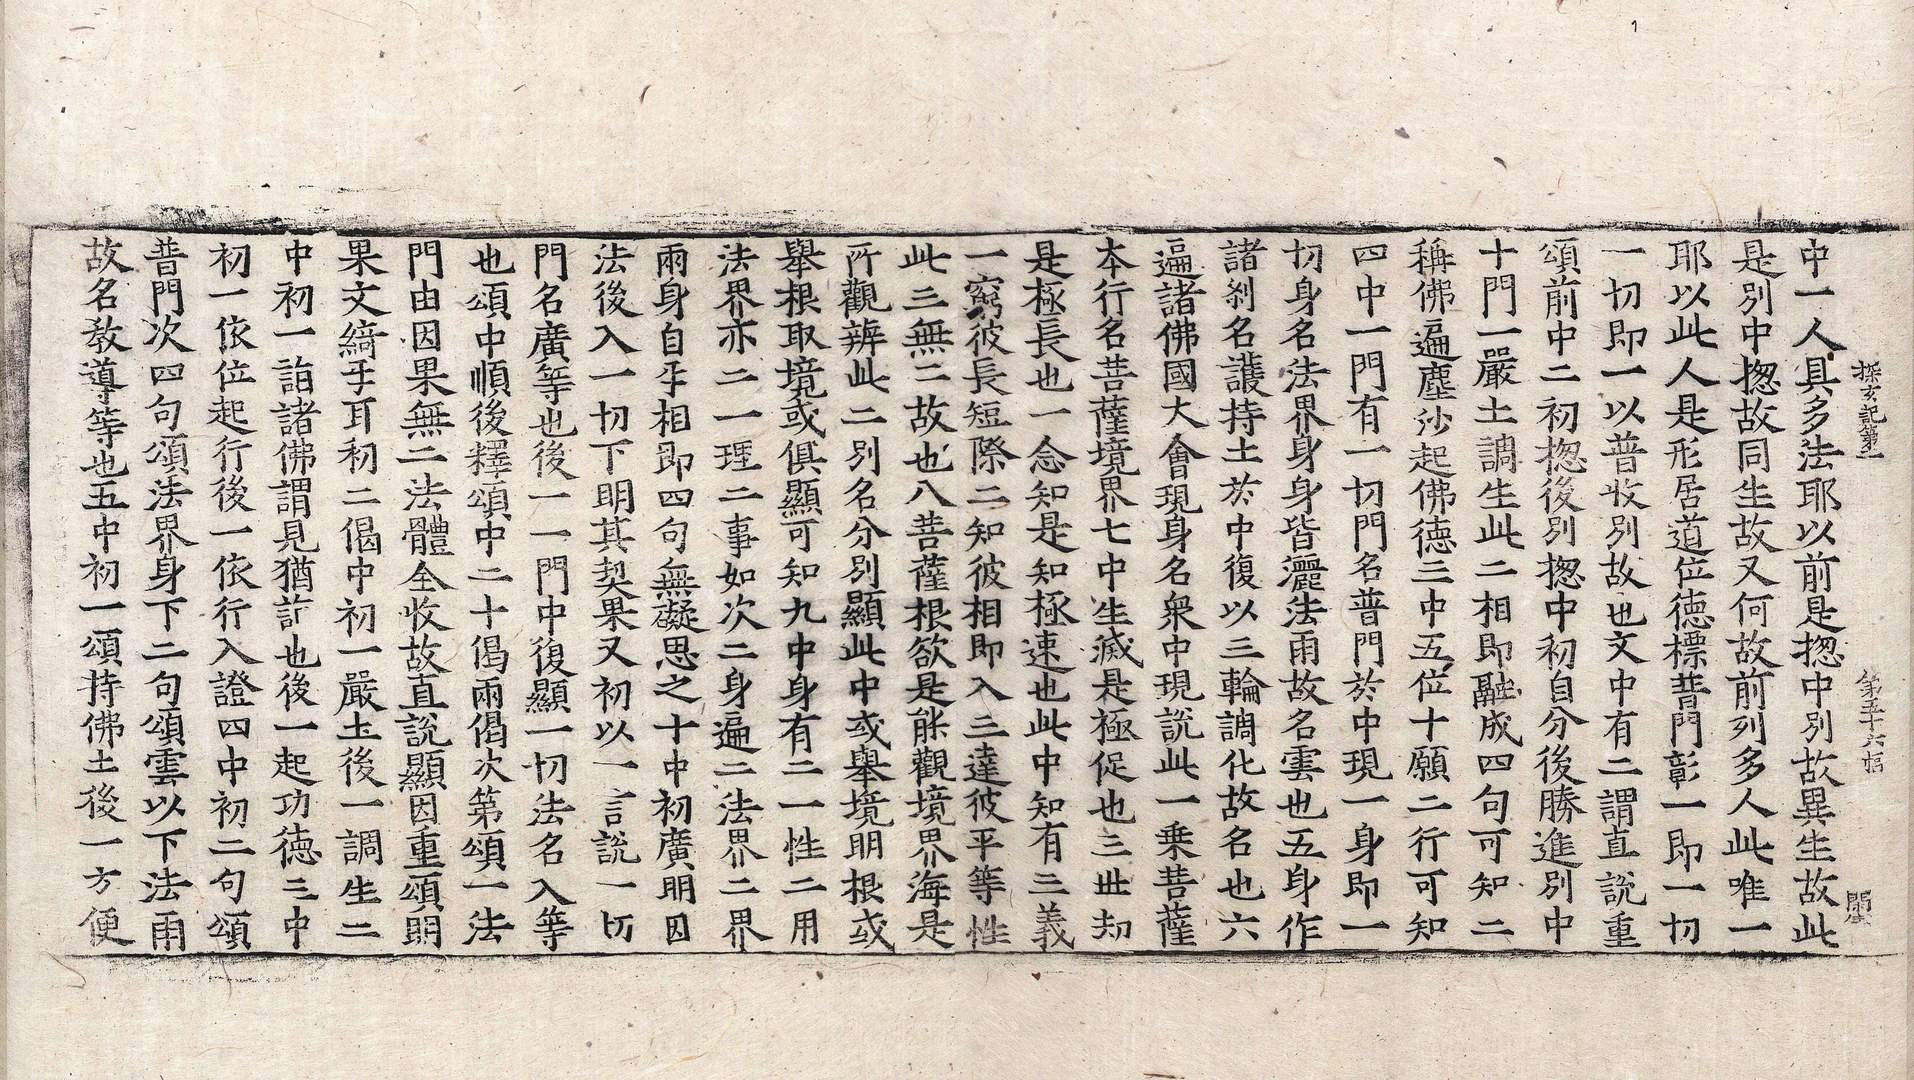 探玄記第二　第五十六幅　閑
中一人具多法耶以前是揔中別故異生故此
是別中揔故同生故又何故前列多人此唯一
耶以此人是形居道位德標普門彰一即一切
一切即一以普收別故也文中有二謂直說重
頌前中二初揔後別揔中初自分後勝進別中
十門一嚴土調生此二相即融成四句可知二
稱佛遍塵沙起佛德三中五位十願二行可知
四中一門有一切門名普門於中現一身即一
切身名法界身身皆灑法雨故名雲也五身作
諸刹名護持土於中復以三輪調化故名也六
遍諸佛國大會現身名衆中現說此一乗菩薩
本行名菩薩境界七中生滅是極促也三世刧
是極長也一念知是知極速也此中知有三義
一窮彼長短際二知彼相即入三達彼平等性
此三無二故也八菩薩根欲是能觀境界海是
所觀辨此二別名分別顯此中或舉境明根或
舉根取境或俱顯可知九中身有二一性二用
法界亦二一理二事如次二身遍二法界二界
兩身自𭃡相即四句無礙思之十中初廣明因
法後入一切下明其契果又初以一言說一切
門名廣等也後一一門中復顯一切法名入等
也頌中順後釋頌中二十偈兩偈次第頌一法
門由因果無二法體全收故直說顯因重頌明
果文綺𭃡耳初二偈中初一嚴土後一調生二
中初一詣諸佛謂見猶許也後一起功德三中
初一依位起行後一依行入證四中初二句頌
普門次四句頌法界身下二句頌雲以下法雨
故名教導等也五中初一頌持佛土後一方便